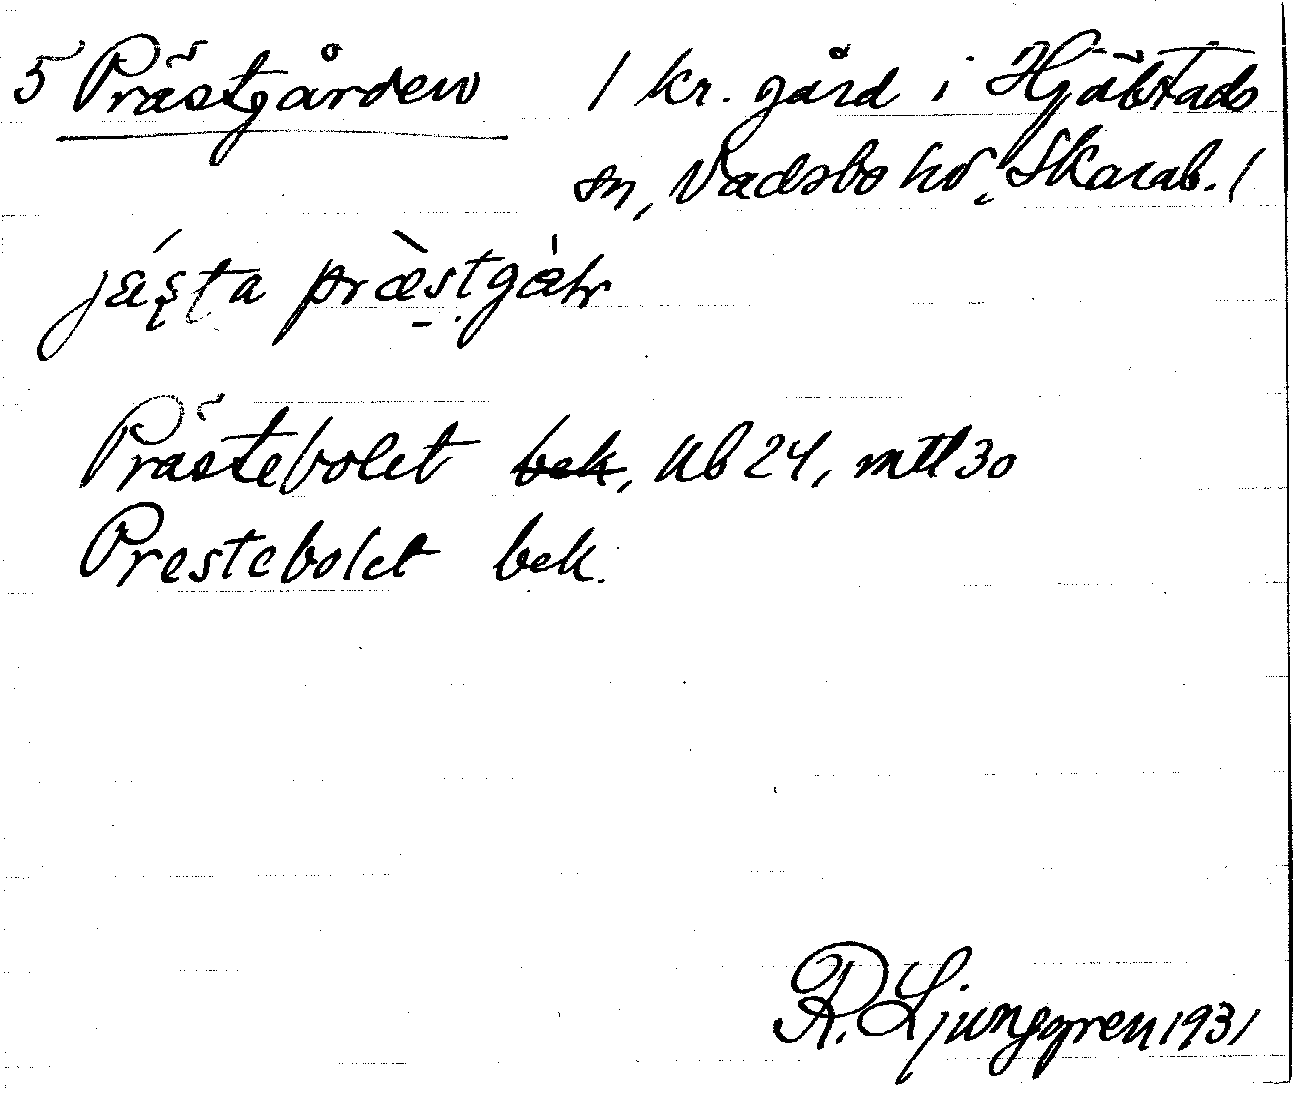 5 Prästgården / kr. gård i Hjälstads
sn, Vadsbo hd, Skarab. /
jæ̀sta præ̀stgɑ̀ɳ
Prästebolet bek, ub 24, mtl 30
Prestebolet bek.
R. Ljunggren 1931